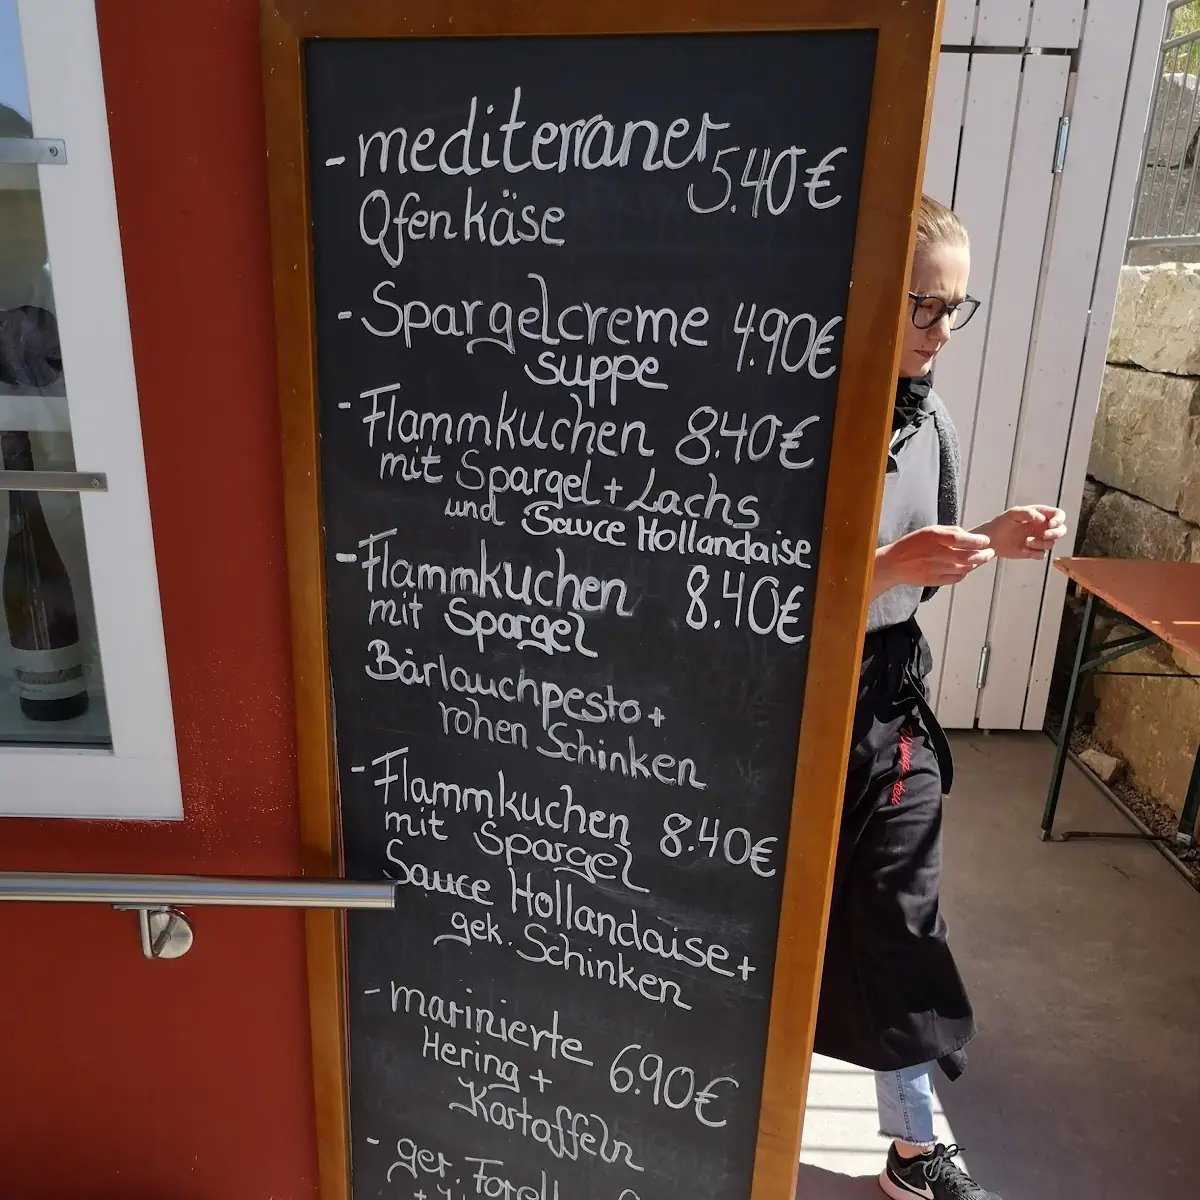 - mediterraner 5.40€
Ofenkäse
- Spargelcreme 4.90€
suppe
- Flammkuchen 8.40€
mit Spargel + Lachs
und Sauce Hollandaise
- Flammkuchen 8.40€
mit Spargel
Bärlauchpesto +
rohen Schinken
- Flammkuchen 8.40€
mit Spargel
Sauce Hollandaise +
gek. Schinken
- marinierte 6.90€
Hering +
Kartoffeln
- ger.